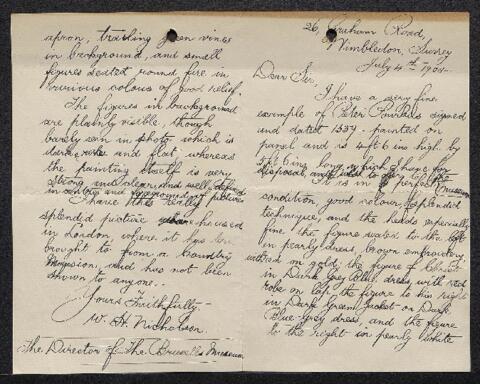 26, Graham Road,
Wimbledon, Surrey
July 4th 190
Dear Sir,
I have a very fine
example of Peter Pourbus signed
and dated 1559. painted on
panel and is 4 ft 6 ins high by
5 ft 6 ins long which I have for
disposal,
Museum
It is in perfect
condition, good colour, splendid
technique, and the heads especially
fine the figure seated to the left
in pearly dress, brown embroidery
on gold, the figure of Christ
in Dark Grey Blue dress, with red
robe on lap, the figure to his right
in Dark Green Jacket on Dark
Blue-Grey dress, and the figure
to the right in pearly White
apron, trailing green vines
in background, and small
figures seated round fire in
various colours of good relief.
The figures in background
are plainly visible, though
barely seen in photo, which is
dark and flat whereas
the painting itself is very
strong and clear, and well defined
in
I have this really
splendid picture
in London where it has
brought to from a Country
Mansion, and has not been
shown to anyone.
Yours Faithfully
W. H. Nicholson.
The Director of The Brussels Museum